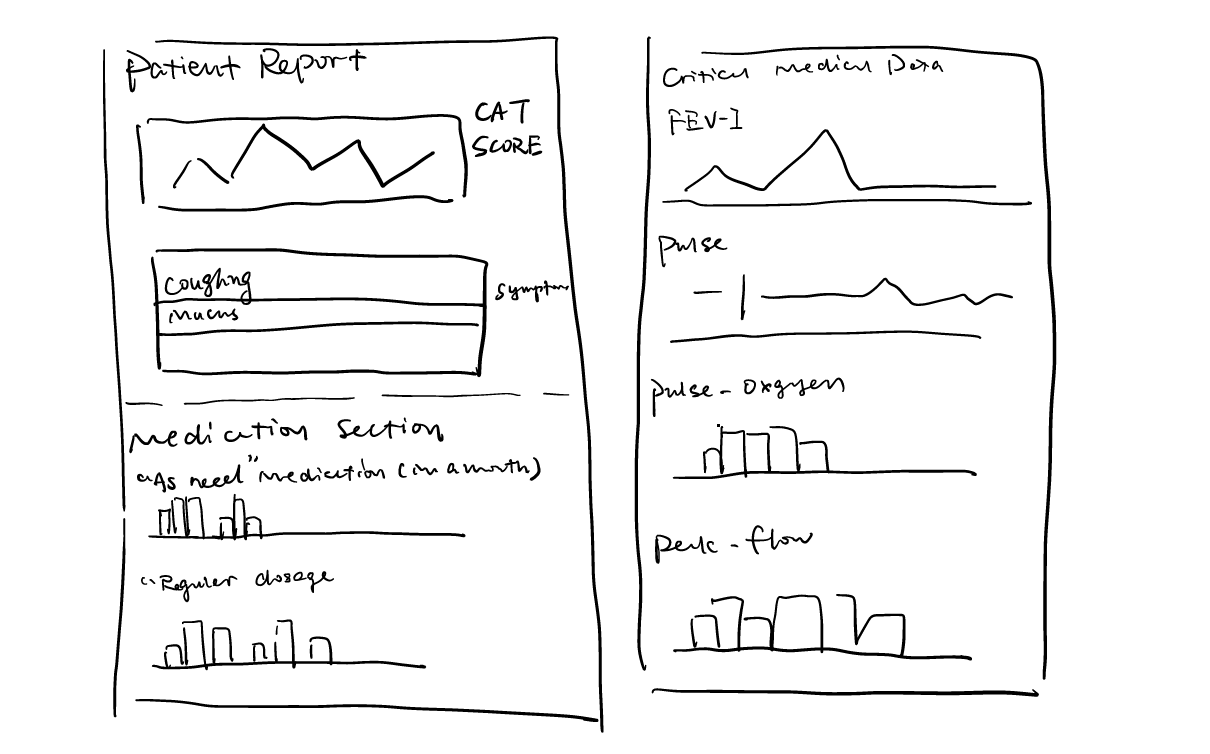 Patient Report
CAT
SCORE
Coughing
Mucus
Symptom
Medication Section
"As need" medication (in a month)
"Reguler dosage
Critical medical Data
FEV-1
Pulse
Pulse - Oxgyen
Peak - flow